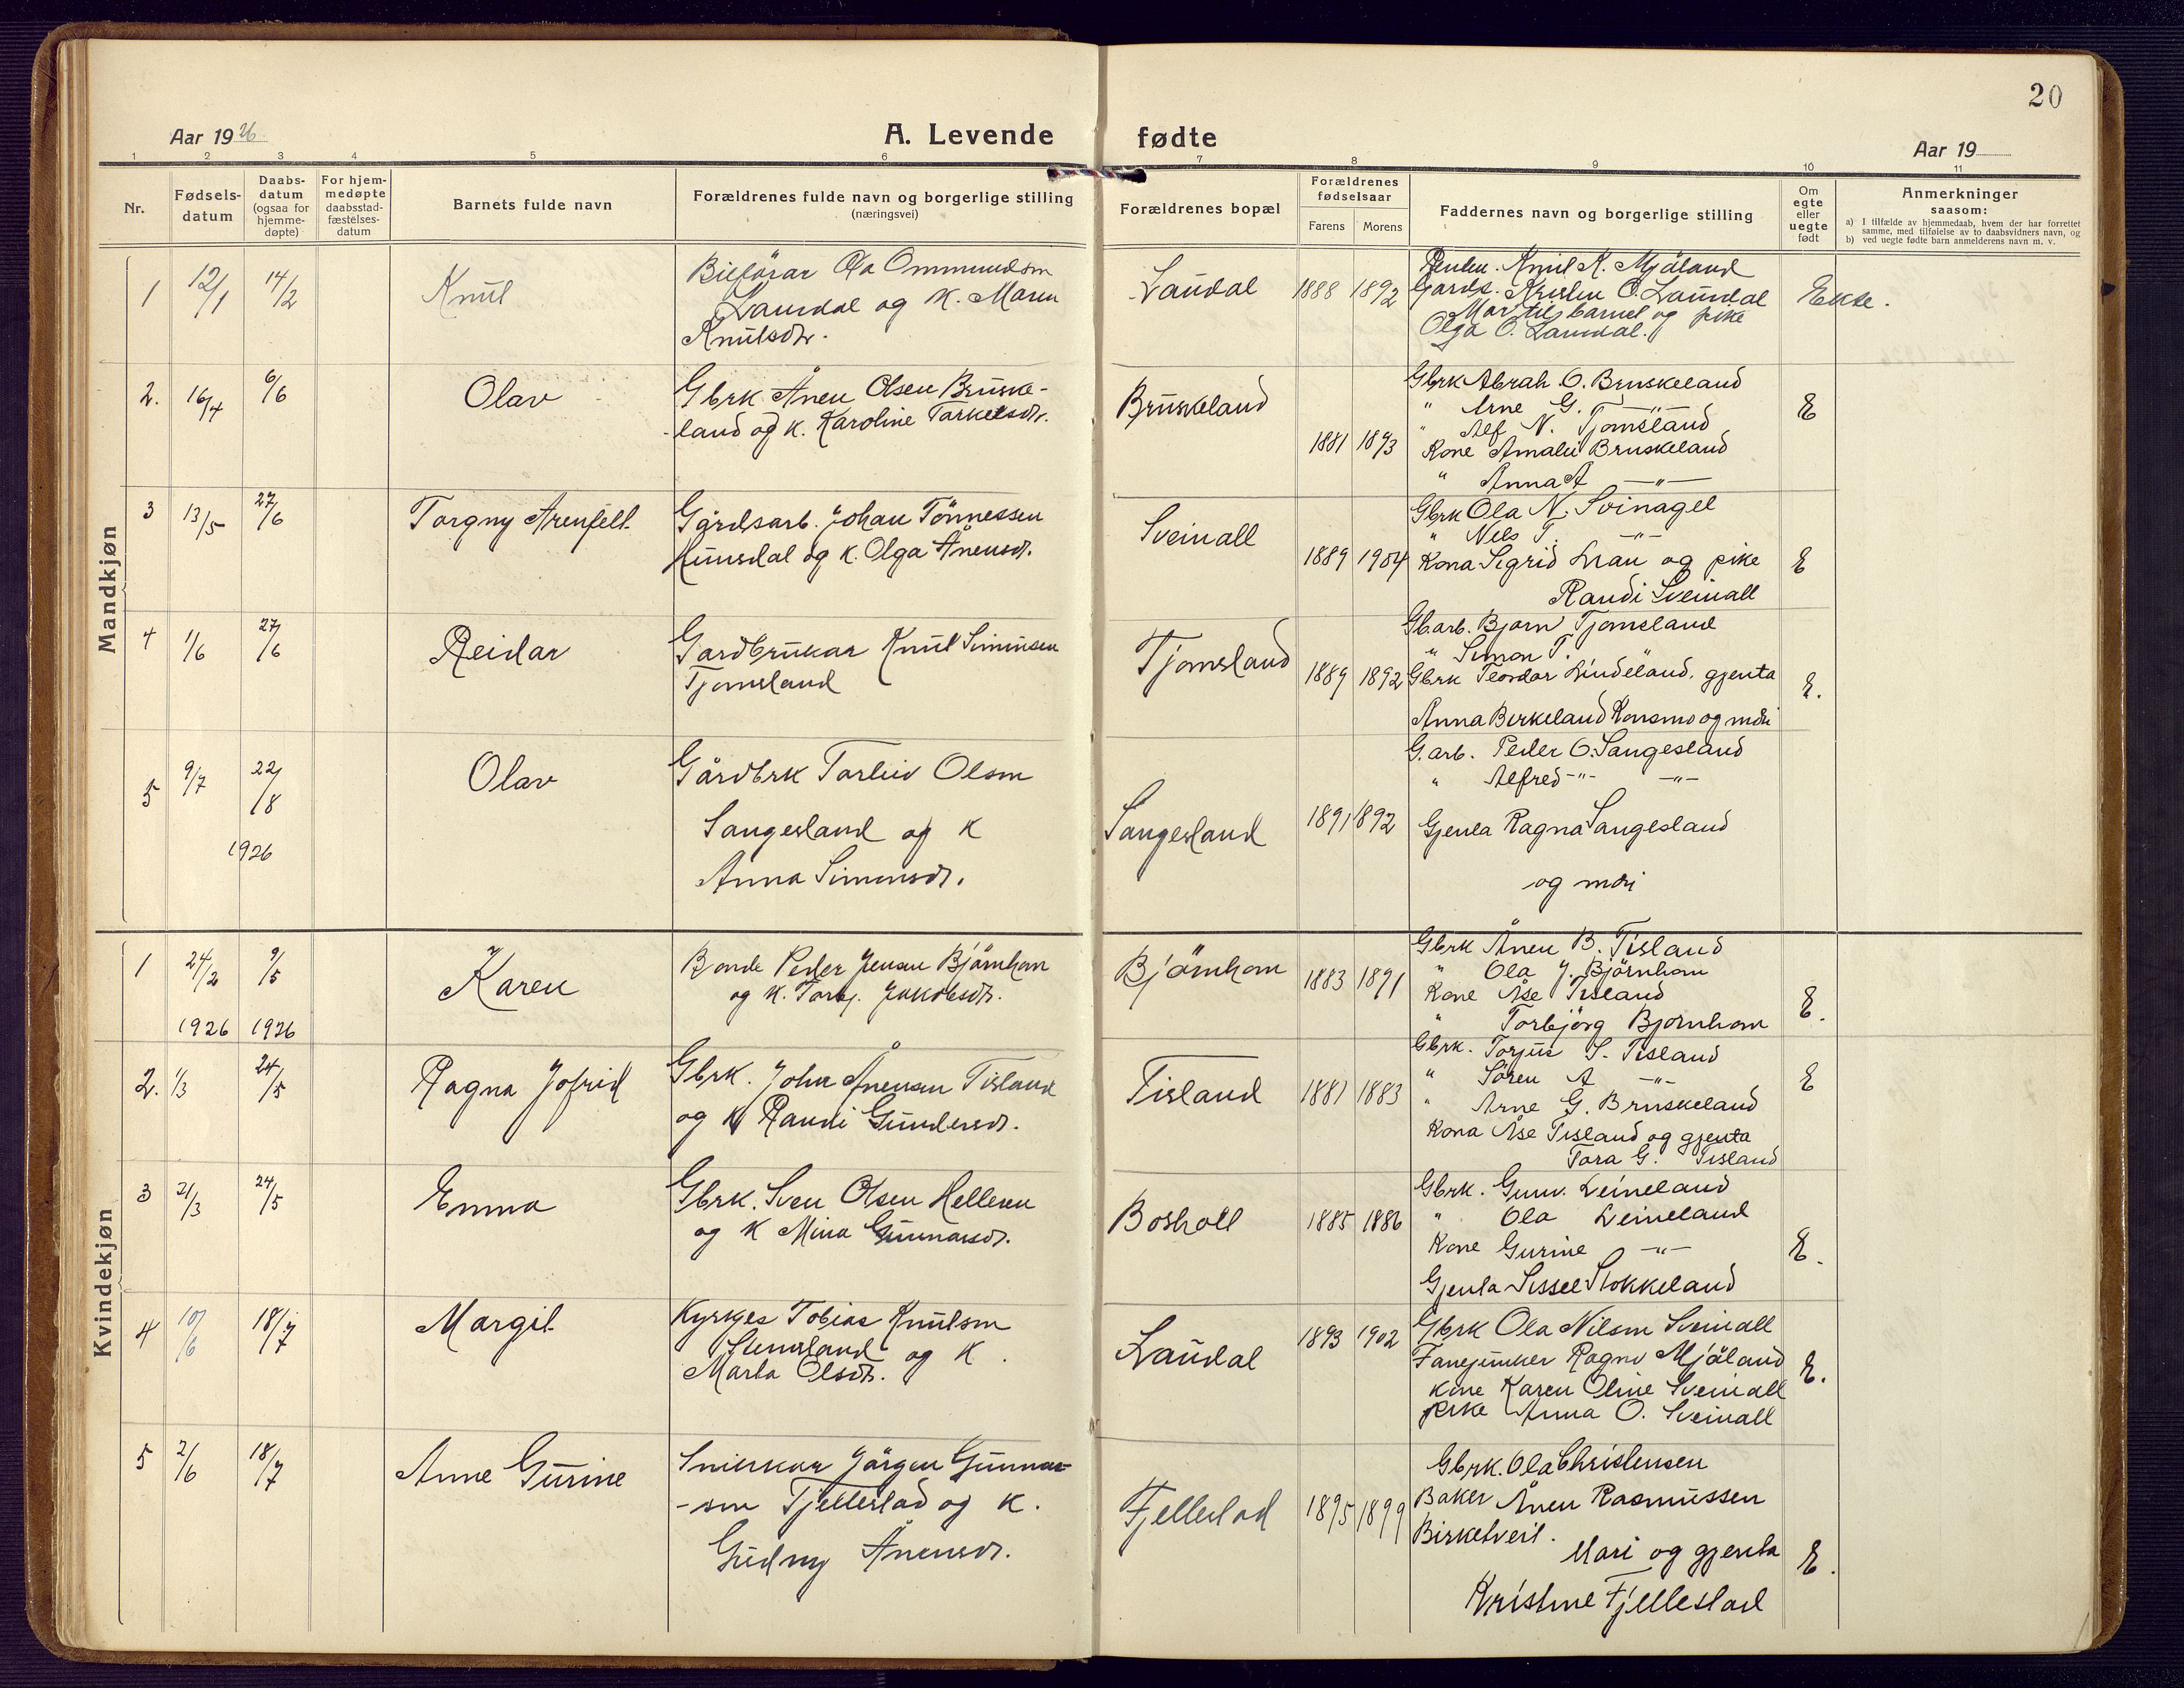 20
Aar 1926
A. Levende fødte
Aar 19
1 2 3 4 5 6 7 8 9 10 11
Nr.
Fødsels-
datum
Daabs-
datum
(ogsaa for
hjemme-
døpte)
For hjem-
medøpte
daabsstad-
fæstelses-
datum
Barnets fulde navn
Forældrenes fulde navn og borgerlige stilling
(næringsvei)
Forældrenes bopæl
Forældrenes
fødselsaar
Farens Morens
Faddernes navn og borgerlige stilling
Om
egte
eller
uegte
født
Anmerkninger
saasom:
a) I tilfælde av hjemmedaab, hvem der har forrettet
samme, med tilføielse av to daabsvidners navn, og
b) ved uegte fødte barn anmelderens navn m. v.
Mandkjøn
1 12/1 14/2 Knut
Bilförar Ola Ommundsen
Laudal og K. Maren
Knutsdtr.
Laudal 1888 1892
Knut K. Mjåland
Gards. Kristen O. Laudal
Mor til barnet og pike
Olga O. Laudal.
Ekte.
2. 16/4 6/6 Olav
Gbrk. Ånen Olsen Bruske-
-land og K. Karoline Tarkelsdr.
Bruskeland 1881 1893
Gbrk Abrah. O. Bruskeland
" Arne G. -"-
" Alf N. Tjomsland
Kone Amalie Bruskeland
" Anna A -"-
E
3 13/5 27/6 Torgny Arenfelt
Gårdsarb. Johan Tönnessen
Hunsdal og K. Olga Ånensdr.
Sveinall 1889 1904
Gbrk Ola N. Svinagel
" Nels T. -"-
Kona Sigrid Lian og pike
Randi Sveinall
E
4 1/6 27/6 Reidar
Gardbrukar Knut Simonsen
Tjomsland
Tjomsland 1889 1892
Gbarb. Bjorn Tjomsland
" Simon T.
Gbrk Teodor Lindeland, gjenta
Anna Birkeland Konsmo og mori
E.
5 9/7 22/8 1926 Olav
Gårdbrk Torleiv Olsen
Sangesland og K
Anna Simonsdr.
Sangesland 1891 1892
G.arb. Peder O. Sangesland
" Alfred -"- -"-
Gjenta Ragna Sangesland
og mori
Kvindekjøn
1 24/2 1926 9/5 1926 Karen
Bonde Peder Jensen Björnham
og K. Torbj. Jakobsdr.
Björnham 1883 1891
Gbrk Ånen B. Tisland
" Ola J. Björnham
Kone Åse Tisland
" Torbjörg Bjornham
E.
2. 1/3 24/5 Ragna Jofrid
Gbrk. John Ånensen Tisland
og K Randi Gundersdr.
Tisland 1881 1883
Gbrk. Torjus S. Tisland
" Sören A -"-
" Arne G. Bruskeland
Kona Åse Tisland og gjenta
Tora G. Tisland
E
3 21/3 24/5 Emma
Gbrk. Sven Olsen Helleren
og K Mina Gunnarsdr.
Bosholt 1885 1886
Gbrk. Gunv. Leineland
" Ola Leineland
Kone Gurine -"-
Gjenta Sissel Stokkeland
E.
4 10/6 18/7 Margit
Kyrkjes Tobias Knutsen
Stensland og K.
Marta Olsdtr.
Laudal 1893 1902
Gbrk Ola Nilsen Sveinall
Fanejunker Ragnv Mjåland
Kone Karen Oline Sveinall
Pike Anna O. Sveinall
E.
5 2/6 18/7 Anne Gurine
Snikkar Jörgen Gunnar-
-sen Fjellestad og K.
Gudny Ånensdr.
Fjellestad 1895 1899
Gbrk. Ola Christensen
Baker Ånen Rasmussen
Birketveit.
Mari og gjenta
Kristine Fjellestad
E.